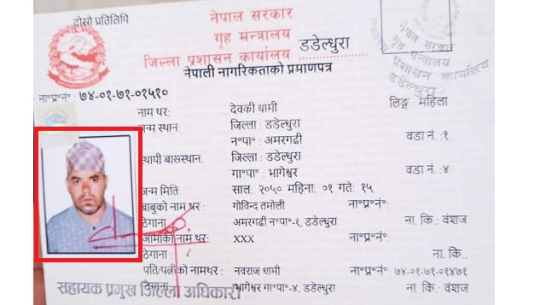 दोस्रो प्रतिलिपि
नेपाल सरकार
गृह मन्त्रालय
जिल्ला प्रशासन कार्यालय डडेल्धुरा
नेपाली नागरिकताको प्रमाणपत्र
ना॰प्र॰नं॰ ७४-०१-७१-०१५१०
नाम थर: देवकी थामी लिङ्ग: महिला
जन्म स्थान: जिल्ला: डडेल्धुरा
न॰पा॰: अमरगढी वडा नं.:१
स्थायी बासस्थान: जिल्ला: डडेल्धुरा
गा॰पा॰: भागेश्वर वडा नं.:४
जन्म मिति: साल: २०५० महिना: ०१ गते: १५
बाबुको नाम थर: गोविन्द तमोली ना॰प्र॰नं॰:
ठेगाना: अमरगढी न॰पा॰-१, डडेल्धुरा ना. कि.: वंशज
आमाको नाम थर: XXX ना॰प्र॰नं॰:
ठेगाना: ना. कि.:
पति/पत्नीको नामथर: नवराज थामी ना॰प्र॰नं॰ ७४-०१-७१-०१४७१
ठेगाना: भागेश्वर गा॰पा॰-४, डडेल्धुरा ना. कि.: वंशज
सहायक प्रमुख जिल्ला अधिकारी
नेपाल सरकार
गृह मन्त्रालय
प्रशासन कार्यालय
डडेल्धुरा